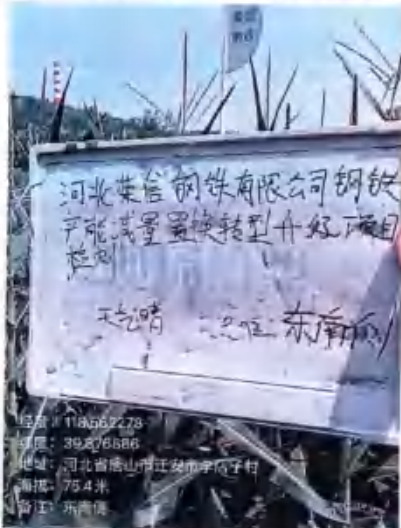 河北荣信钢铁有限公司钢铁
产能减量置换转型升级项目
检测
天气:晴 点位:东南侧
经度:118.562278
纬度:39.876886
地址:河北省唐山市迁安市李店子村
海拔:75.4米
备注:东南侧